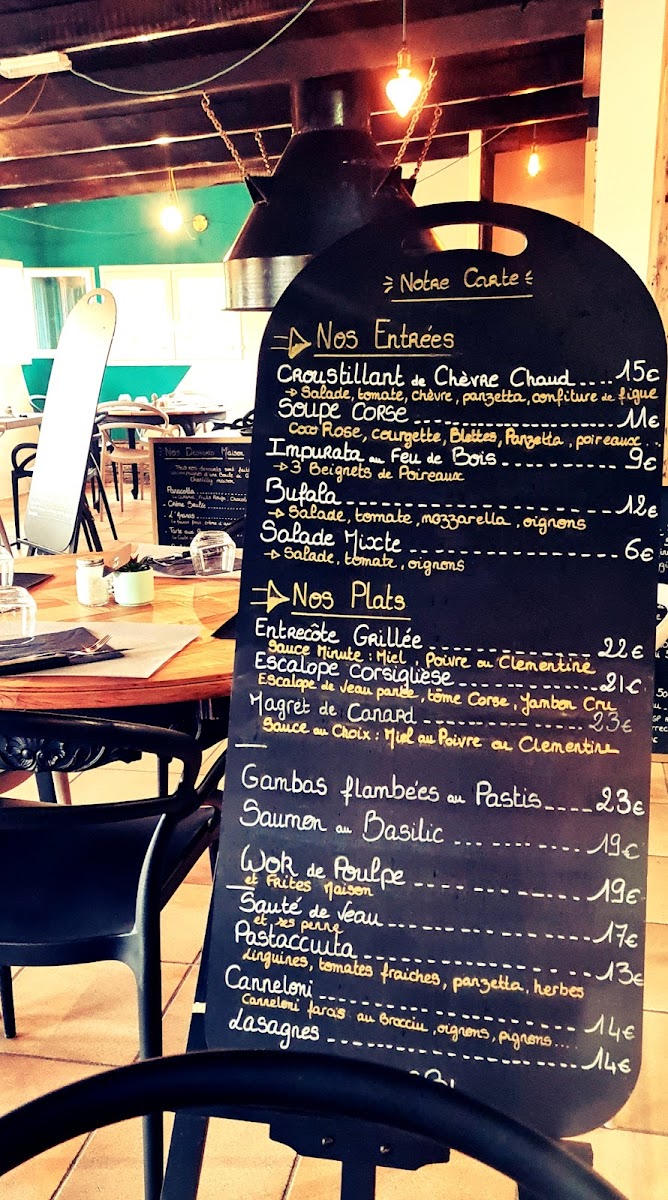 Notre Carte
Nos Entrées
Croustillant de Chèvre Chaud .... 15€
→ Salade, tomate, chèvre, panzetta, confiture de figue
Soupe Corse ---------- 11€
Coco Rose, courgette, Blettes, Panzetta, poireaux...
Impurata au Feu de Bois ---------- 9€
→ 3 Beignets de Poireaux
Bufala ---------- 12€
→ Salade, tomate, mozzarella, oignons
Salade Mixte ---------- 6€
→ Salade, tomate, oignons
Nos Plats
Entrecôte Grillée ---------- 22€
Sauce Minute : Miel, Poivre ou Clementine
Escalope Corsigliese ---------- 21€
Escalope de Veau panée, tome Corse, Jambon Cru
Magret de Canard ---------- 23€
Sauce au Choix : Miel ou Poivre ou Clementine
Gambas flambées au Pastis ---- 23€
Saumon au Basilic ---------- 19€
Wok de Poulpe ---------- 19€
et Frites Maison
Sauté de Veau ---------- 17€
et ses penne
Pastacciuta ---------- 13€
Linguines, tomates fraiches, panzetta, herbes
Canneloni ---------- 14€
Canneloni farcis au Brocciu, oignons, pignons....
Lasagnes ---------- 14€
Nos Desserts Maison
Panacotta
Crème Brulée